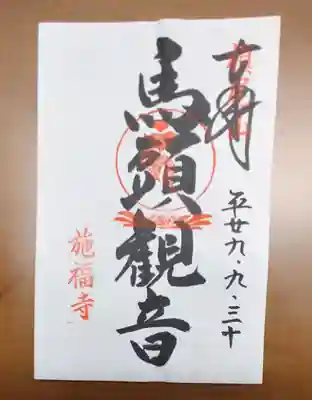 奉拝
平廿九・九・三十
馬頭観音
施福寺